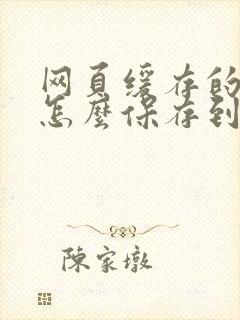 网页缓存的
怎麼保存到
陳家墩